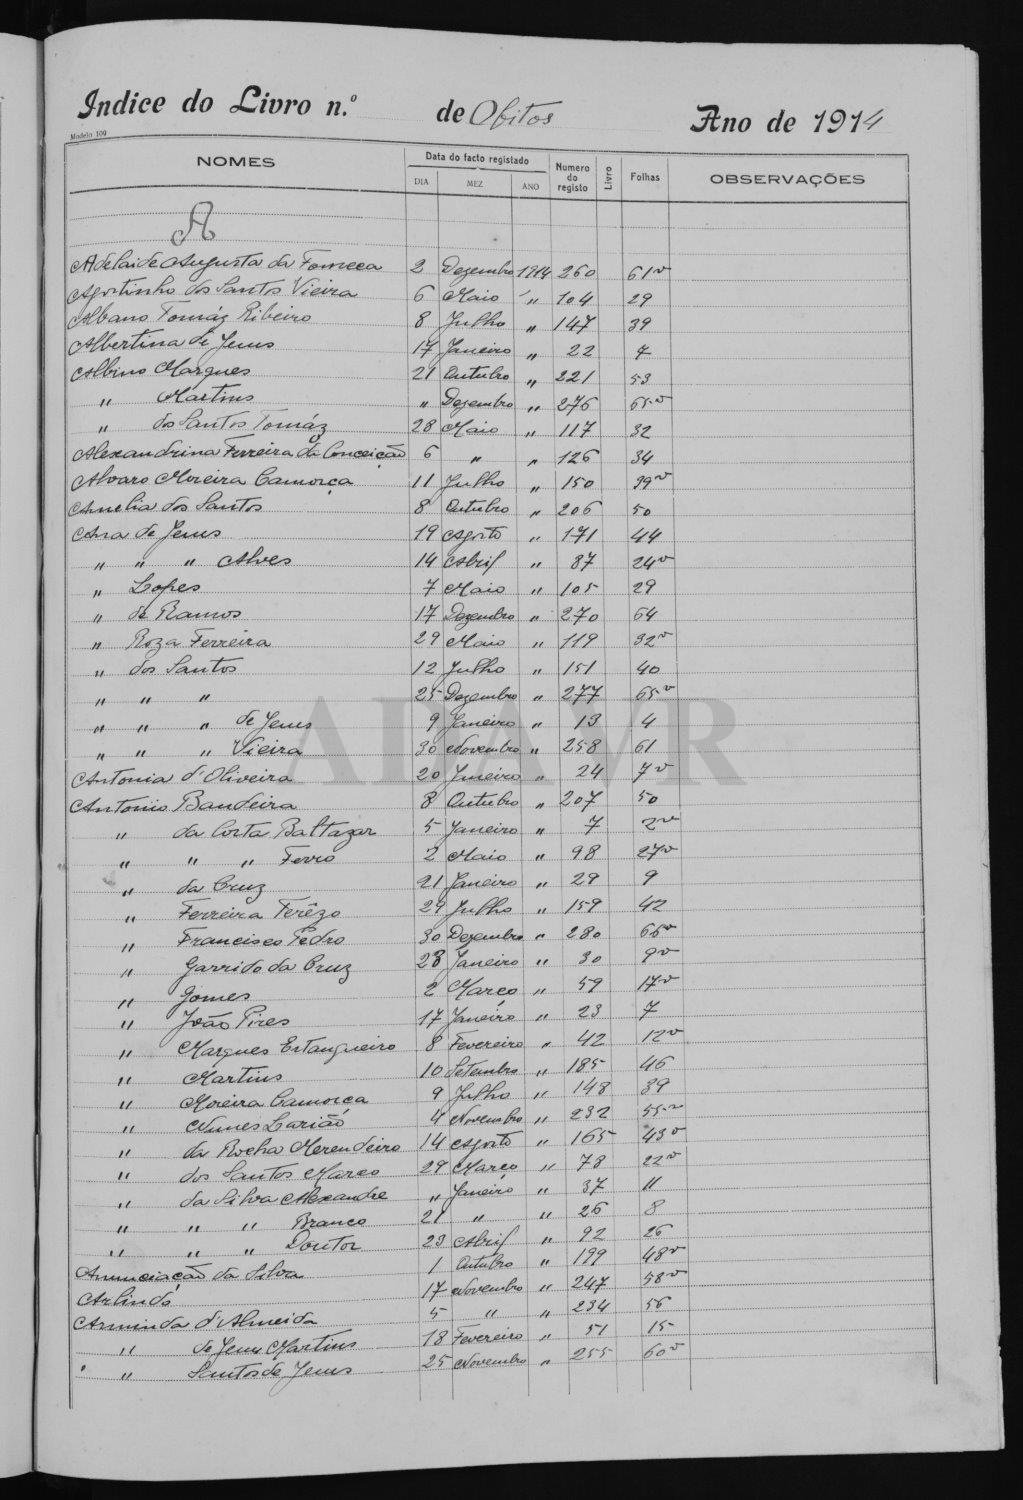 Indice do Livro n.º de Obitos Ano de 1914
Modelo 109
NOMES Data do facto registado Numero do registo Livro Folhas OBSERVAÇÕES
DIA MEZ ANO
A
Adelaide Augusta da Fonseca 2 Dezembro 1914 260 61v
Agostinho dos Santos Vieira 6 Maio " 104 29
Albano Tomáz Ribeiro 8 Julho " 147 39
Albertina de Jesus 17 Janeiro " 22 7
Albino Marques 21 Outubro " 221 53
" Martins " Dezembro " 276 65v
" dos Santos Tomáz 28 Maio " 117 32
Alexandrina Ferreira da Conceição 6 " " 126 34
Alvaro Moreira Camorça 11 Julho " 150 39v
Amelia dos Santos 8 Outubro " 206 50
Ana de Jesus 19 Agosto " 171 44
" " " Alves 14 Abril " 87 24v
" Lopes 7 Maio " 105 29
" de Ramos 17 Dezembro " 270 64
" Roza Ferreira 29 Maio " 119 32v
" dos Santos 12 Julho " 151 40
" " " 25 Dezembro " 277 65v
" " " de Jesus 9 Janeiro " 13 4
" " " Vieira 30 Novembro " 258 61
Antonia d'Oliveira 20 Janeiro " 24 7v
Antonio Bandeira 8 Outubro " 207 50
" da Costa Baltazar 5 Janeiro " 7 2v
" " " Ferro 2 Maio " 98 27v
" da Cruz 21 Janeiro " 29 9
" Ferreira Terêzo 29 Julho " 159 42
" Francisco Pedro 30 Dezembro " 280 66v
" Garrido da Cruz 23 Janeiro " 30 9v
" Gomes 2 Março " 59 17v
" João Pires 17 Janeiro " 23 7
" Marques Estangueiro 8 Fevereiro " 42 12v
" Martins 10 Setembro " 185 46
" Moreira Camorça 9 Julho " 148 39
" Nunes Carião 4 Novembro " 232 55v
" da Rocha Merendeiro 14 Agosto " 165 43v
" dos Santos Marco 29 Março " 78 22v
" da Silva Alexandre " Janeiro " 37 11
" " " Branco 21 " " 26 8
" " " Doutor 23 Abril " 92 26
Anunciação da Silva 1 Outubro " 199 48v
Arlindo 17 Novembro " 247 58v
Arminda d'Almeida 5 " " 234 56
" de Jesus Martins 18 Fevereiro " 51 15
" Santos de Jesus 25 Novembro " 255 60v
ADAVR